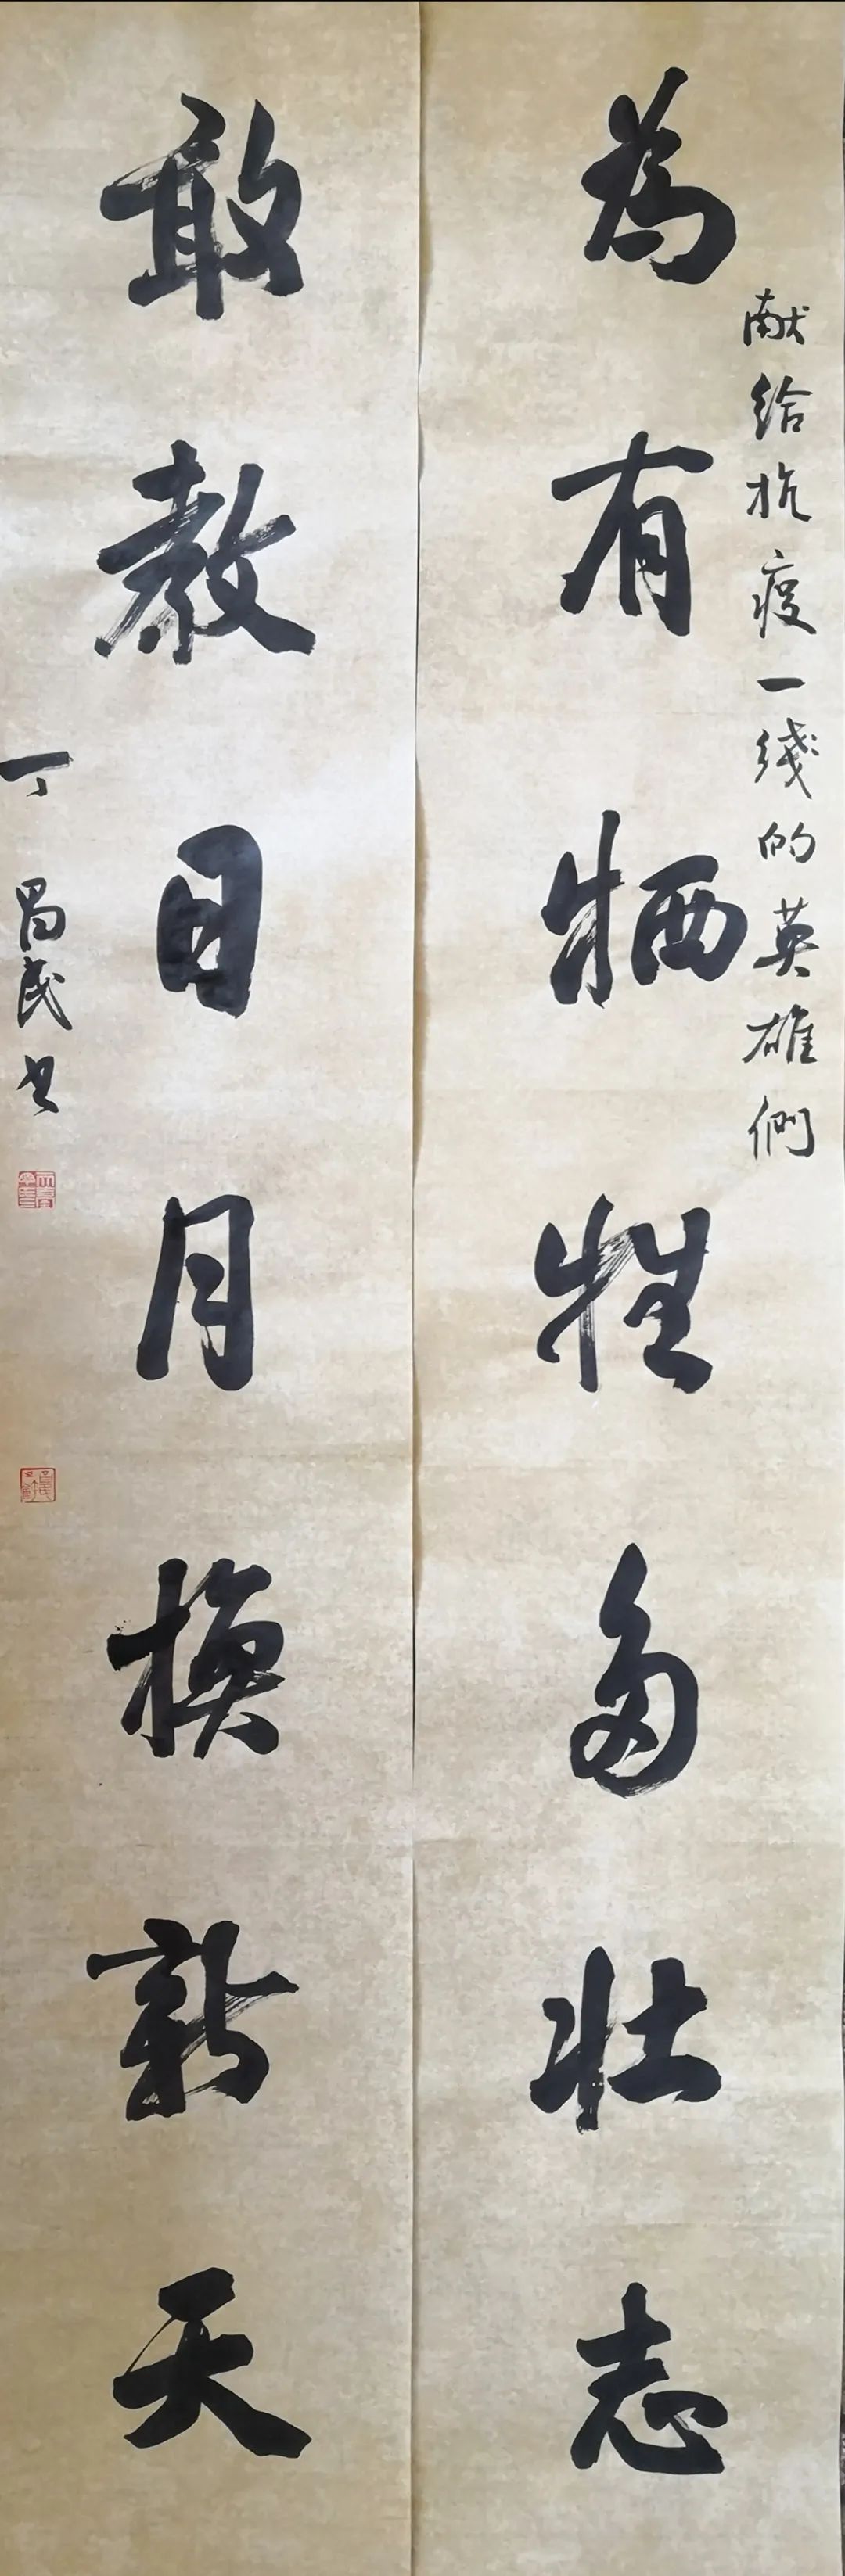 献给抗疫一线的英雄們
為有牺牲多壮志
敢教日月換新天
丁昌民书